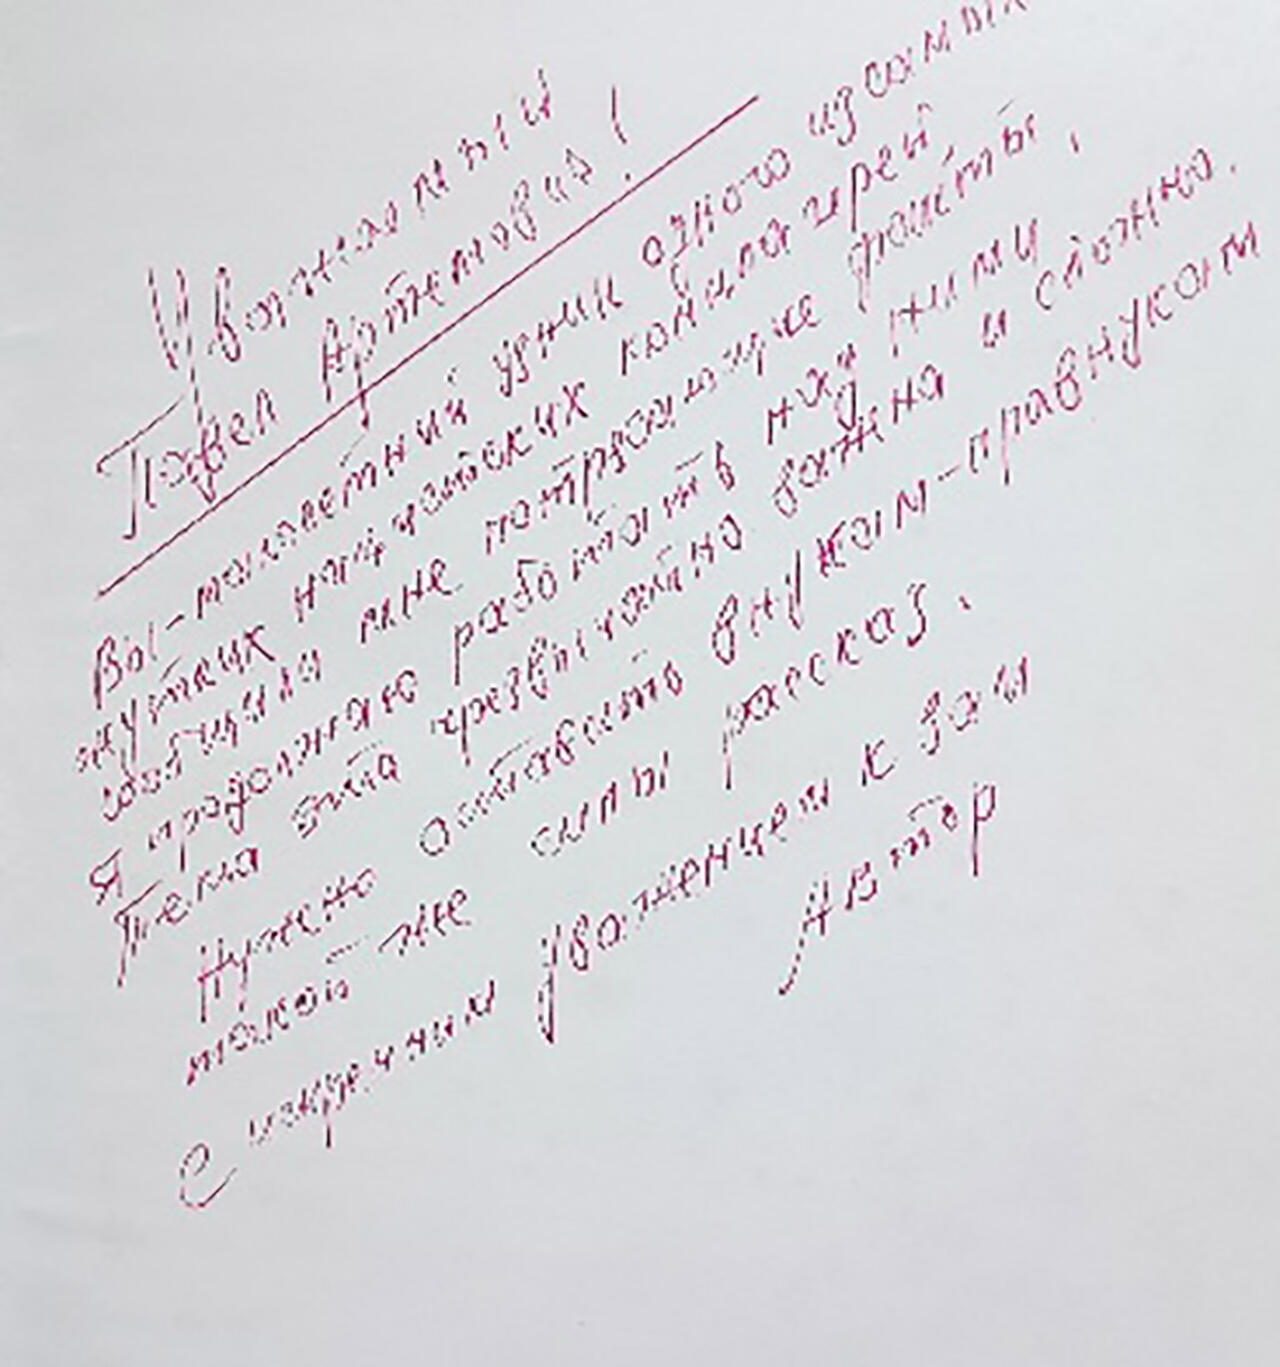 Уважаемый
Павел Артемовия!
Вы - малолетний узник одного из самых
жутких нацистских концлагерей,
сообщили мне потрясающие факты,
Я продолжаю работать над ними
Тема эта чрезвычайно важна и сложна.
Нужно оставить внукам-правнукам
такой же силы рассказ.
С искренним уважением к Вам
Автор